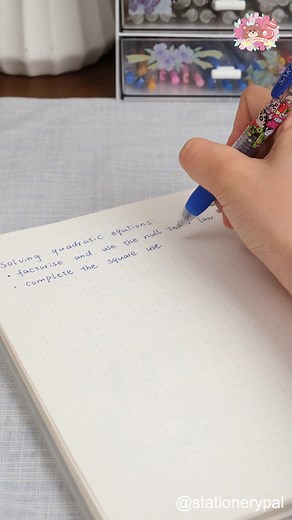 Solving quadratic equtions:
• factorise and use the null law
• complete the square use
@stationerypal